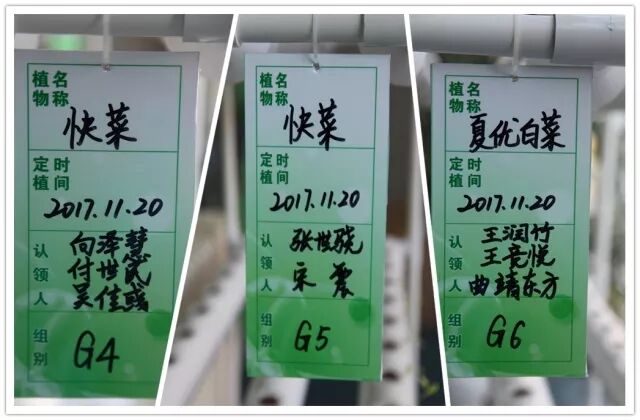 植物名称
快菜
定植时间
2017.11.20
认领人
向泽慧
吴佳彧
组别
G4
植物名称
快菜
定植时间
2017.11.20
认领人
张世骁
宋震
组别
G5
植物名称
夏优白菜
定植时间
2017.11.20
认领人
王润竹
王竞悦
曲靖东方
组别
G6